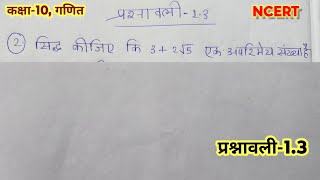 कक्षा-10, गणित
NCERT
प्रश्नावली-1.3
② सिद्ध कीजिए कि 3+2√5 एक अपरिमेय संख्या है
प्रश्नावली-1.3